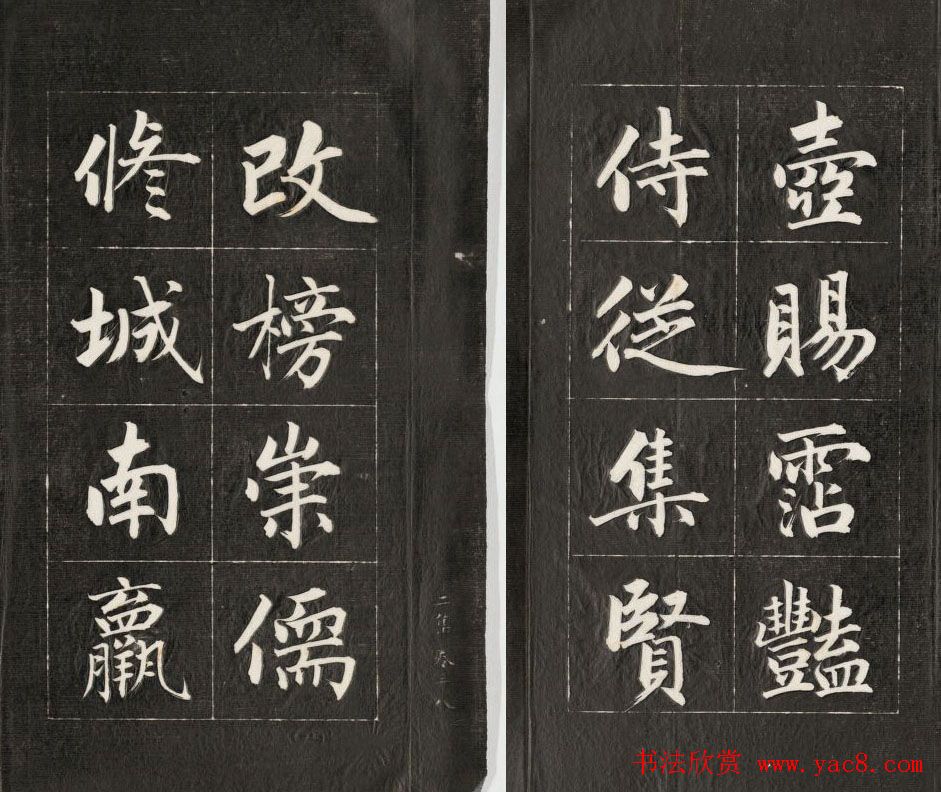 壺賜霑豔
侍從集賢
改榜崇儒
修城南羸
二集卷二八
书法欣赏 www.yac8.com